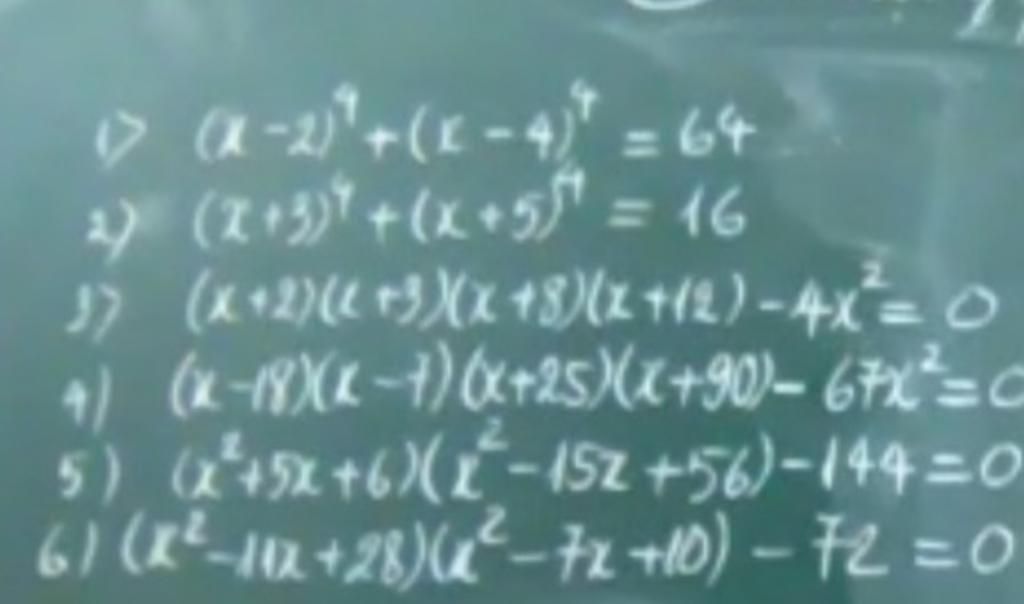 1) (x-2)⁴+(x-4)⁴ = 64
2) (x+3)⁴+(x+5)⁴ = 16
3) (x+2)(x+3)(x+8)(x+12)-4x² = 0
4) (x-18)(x-7)(x+25)(x+90)- 67x² = 0
5) (x²+5x+6)(x²-15x+56)-144 = 0
6) (x²-11x+28)(x²-7x+10) - 72 = 0